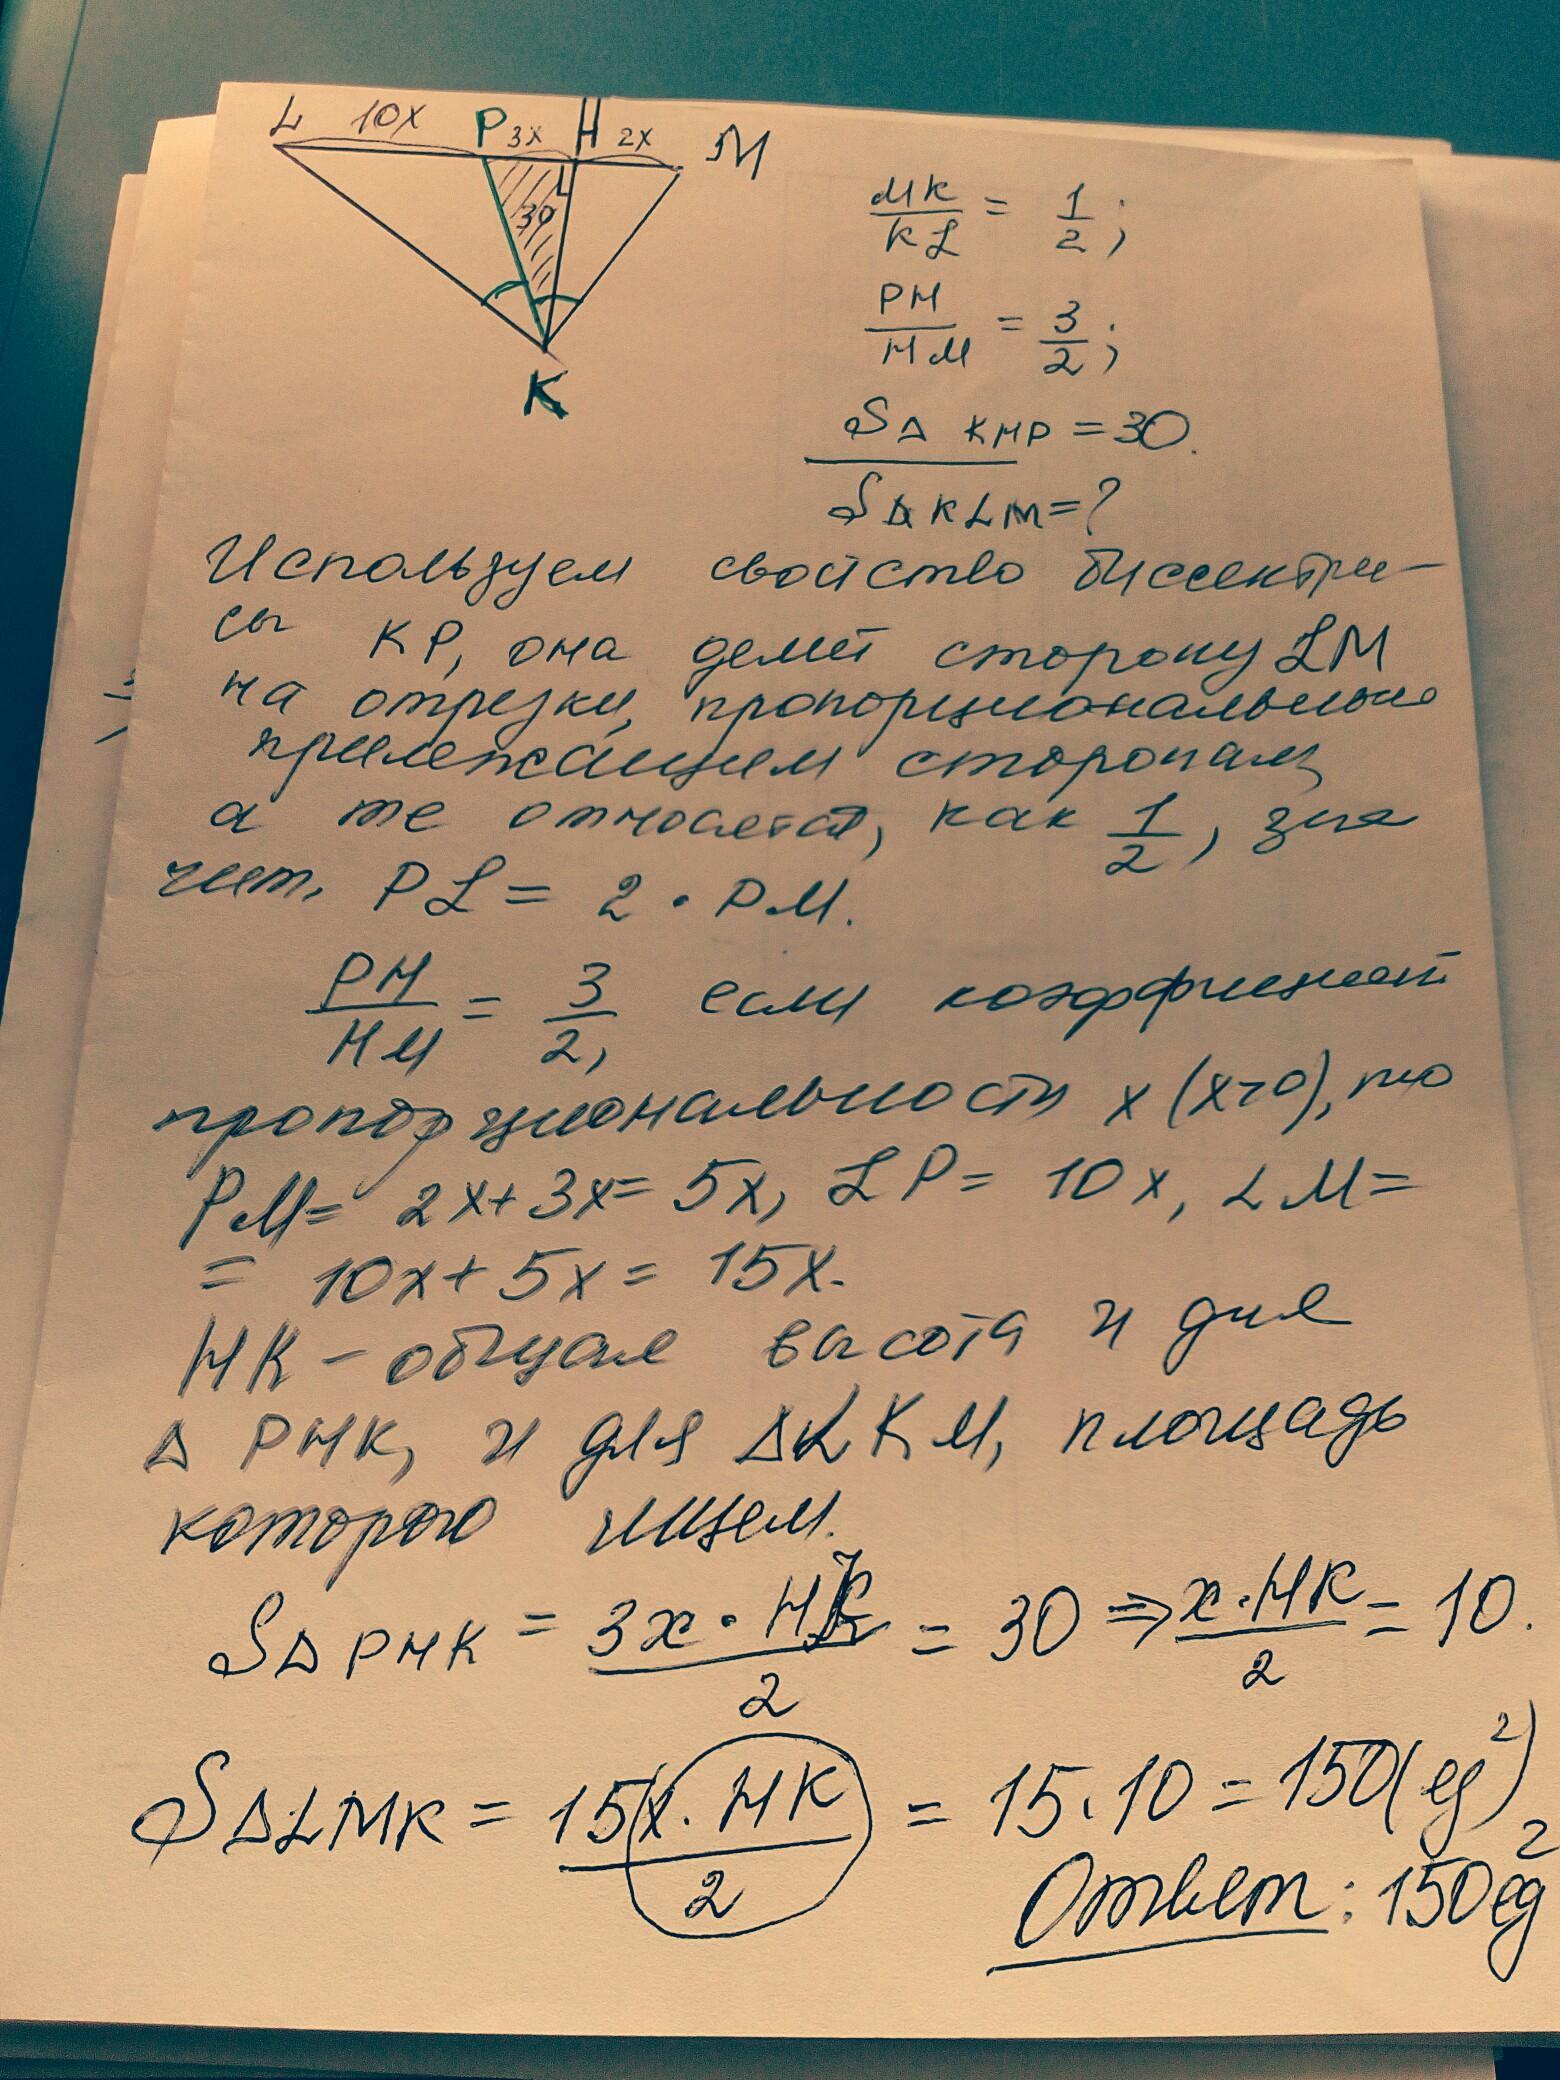 L 10x P 3x H 2x M
30
K
MK/KL = 1/2;
PH/HM = 3/2;
S△ KHP = 30.
S△ KLM = ?
Используем свойство биссектри-
сы KP, она делит сторону LM
на отрезки, пропорциональные
прилежащим сторонам,
а те относятся, как 1/2, зна
чит, PL = 2 · PM.
PH/HM = 3/2, если коэффициент
пропорциональности x (x>0), то
PM = 2x + 3x = 5x, LP = 10x, LM =
= 10x + 5x = 15x.
HK – общая высота и для
△ PHK, и для △LKM, площадь
которого ищем.
S△PHK = 3x · HK/2 = 30 ⇒ x·HK/2 = 10.
S△LMK = 15x · HK/2 = 15·10 = 150(ед²)
Ответ: 150ед²